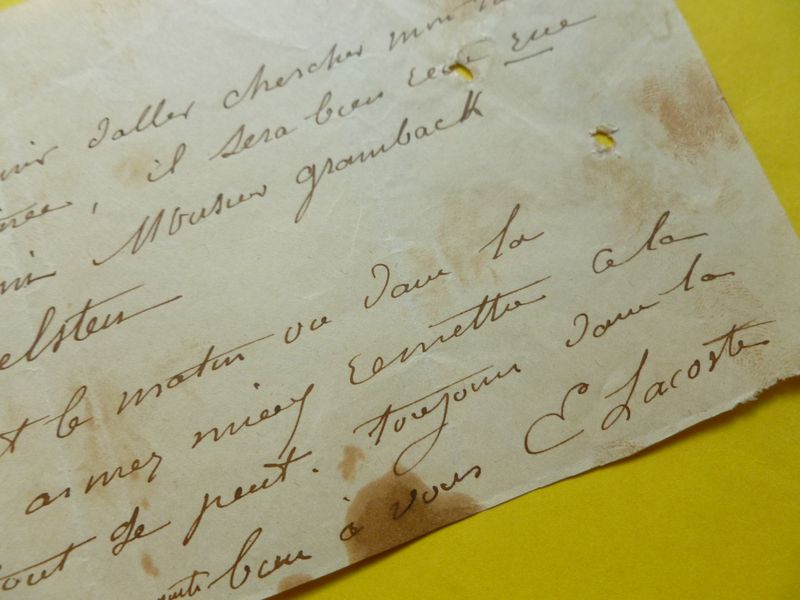 d'aller chercher mon
il sera bien rue
Monsieur gramback
elstein
le matin ou dans la
aimez mieux remettre cela
tout se peut. toujours dans la
bien à vous E Lacoste